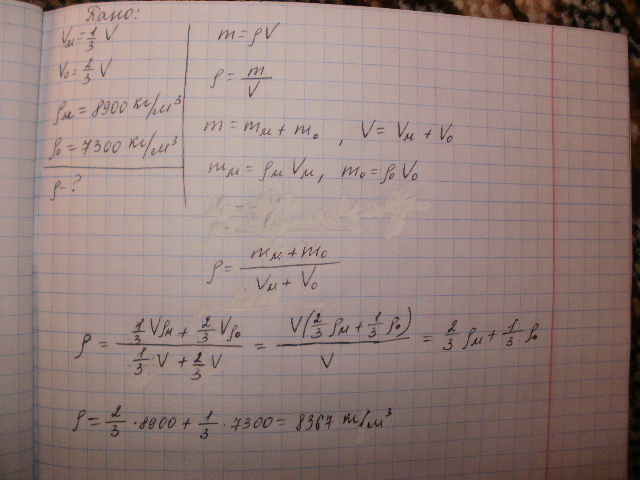 Дано:
Vм = 1/3 V
V₀ = 2/3 V
ρм = 8900 кг/м³
ρ₀ = 7300 кг/м³
ρ-?
m = ρV
ρ = m/V
m = mм + m₀ , V = Vм + V₀
mм = ρм Vм, m₀ = ρ₀ V₀
ρ = (mм + m₀)/(Vм + V₀)
ρ = (1/3 Vρм + 2/3 Vρ₀)/(1/3 V + 2/3 V) = V(2/3 ρм + 1/3 ρ₀)/V = 2/3 ρм + 1/3 ρ₀
ρ = 2/3 · 8900 + 1/3 · 7300 = 8367 кг/м³